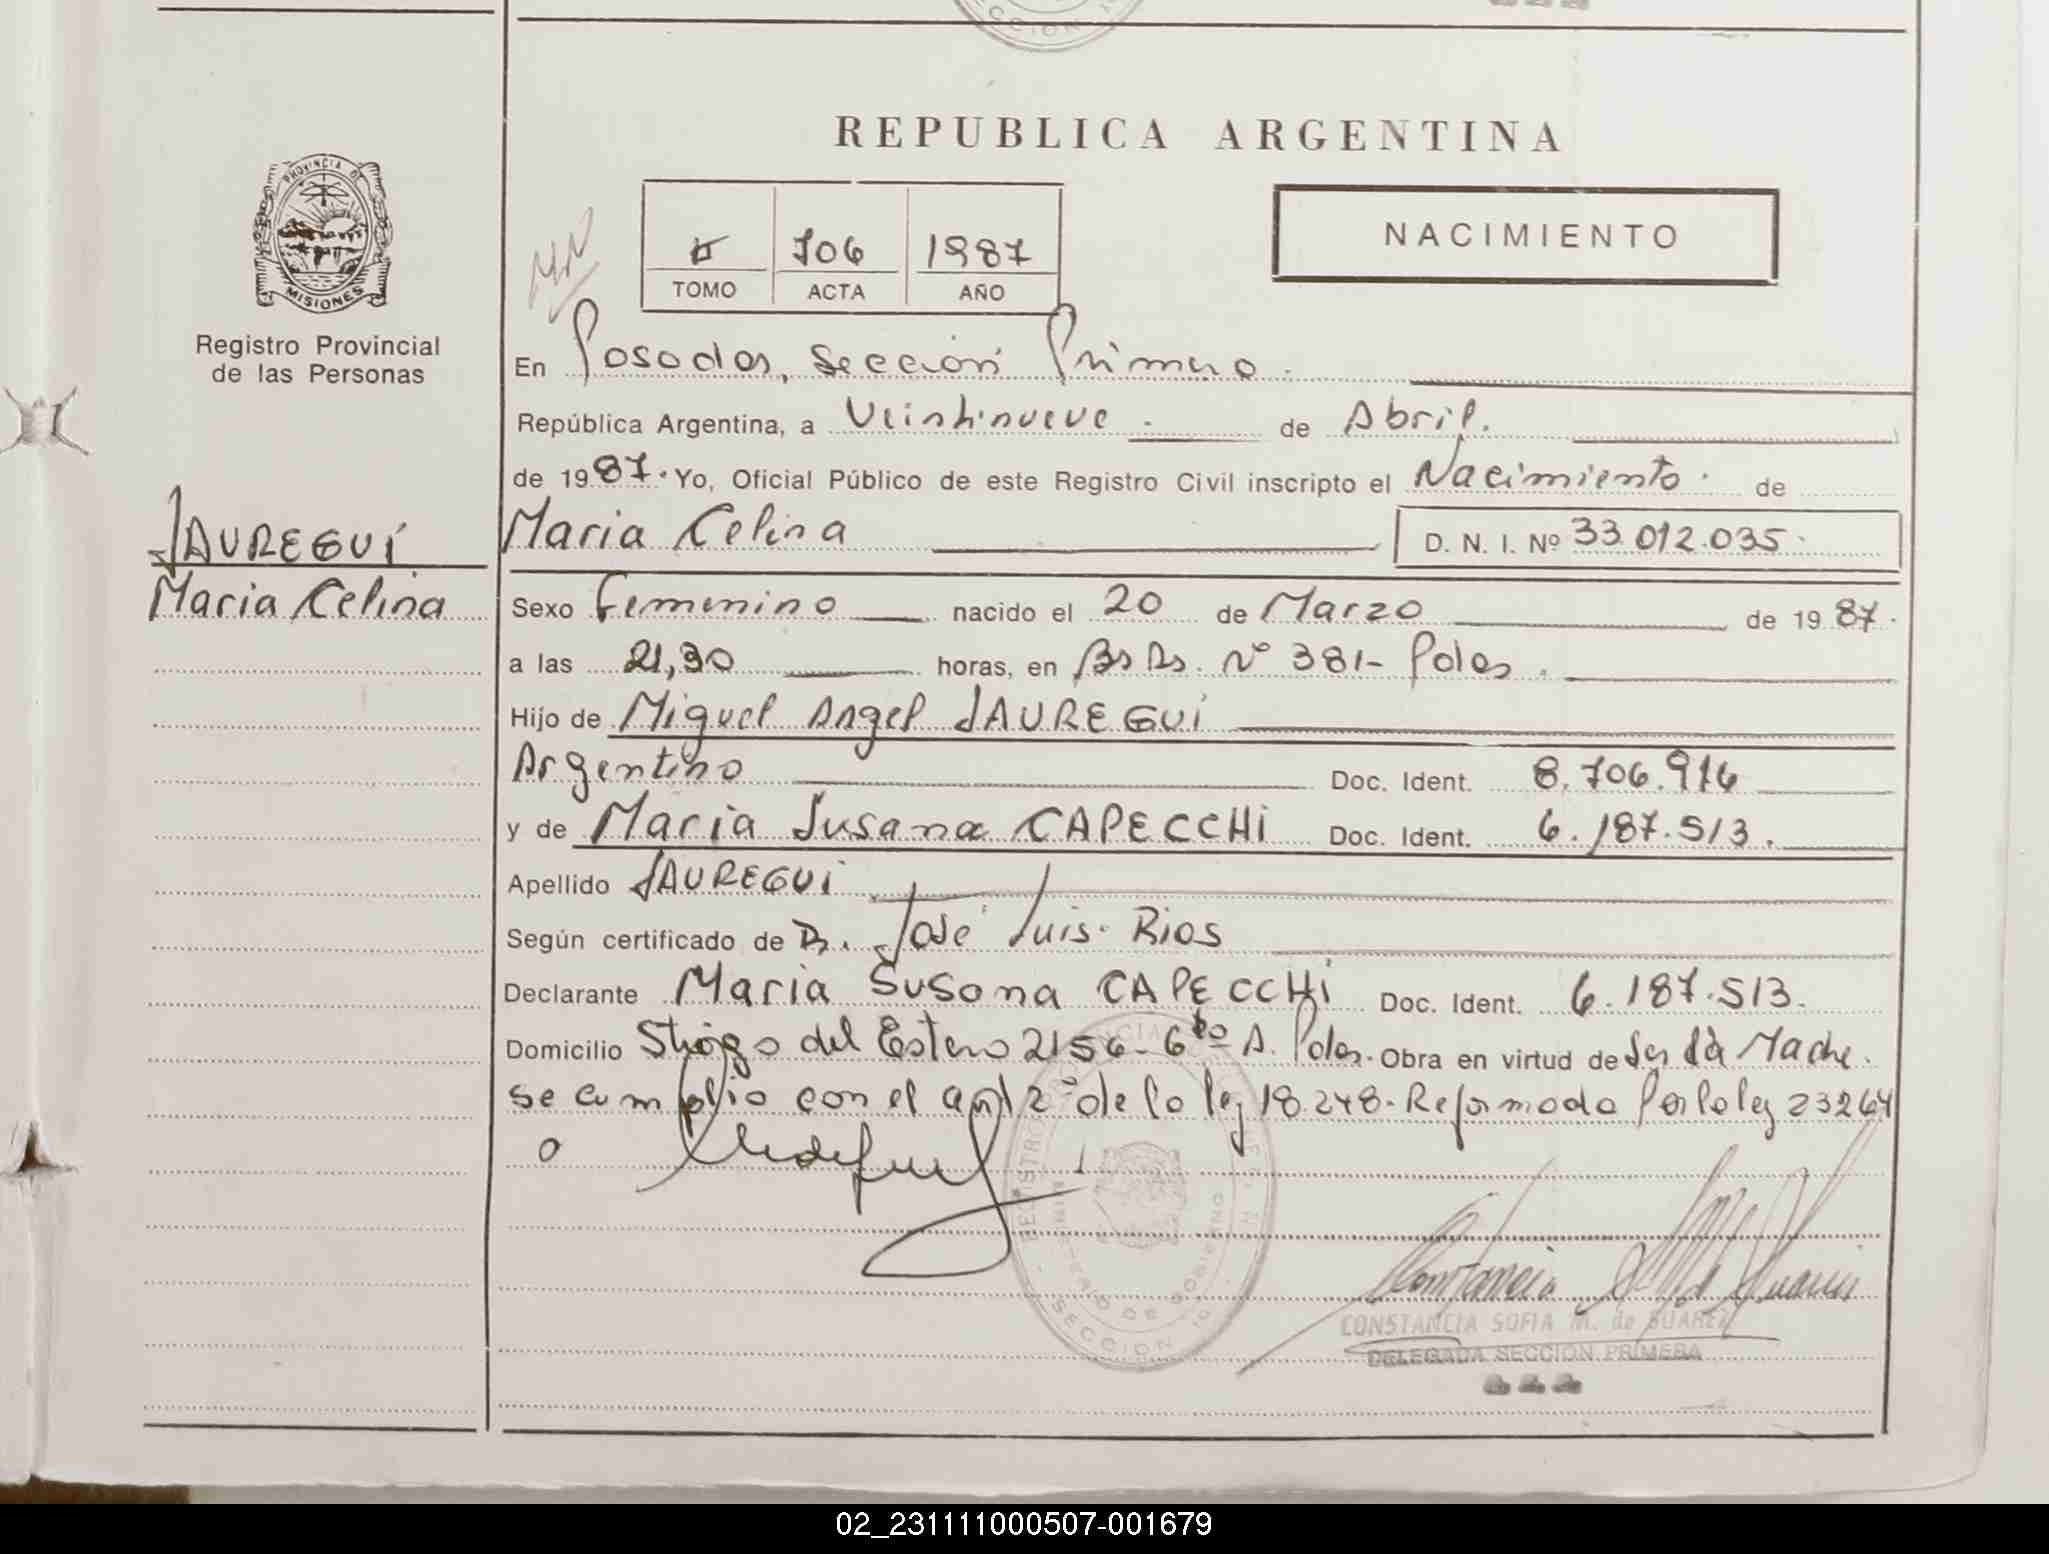 REPUBLICA ARGENTINA
PROVINCIA DE MISIONES
Registro Provincial
de las Personas
706 1987
TOMO ACTA AÑO
NACIMIENTO
En Posadas, Sección Primera.
República Argentina, a Veintinueve de Abril.
de 1987. Yo, Oficial Público de este Registro Civil inscripto el Nacimiento de
JAUREGUI
Maria Celina
Maria Celina D. N. I. Nº 33.012.035.
Sexo Femenino nacido el 20 de Marzo de 1987.
a las 21,30 horas, en Bs As. Nº 381- Pdas.
Hijo de Miguel Angel JAUREGUI
Argentino Doc. Ident. 8.706.916
y de Maria Susana CAPECCHI Doc. Ident. 6.187.513.
Apellido JAUREGUI
Según certificado de Dr. José Luis Rios
Declarante Maria Susana CAPECCHI Doc. Ident. 6.187.513.
Domicilio Stiago del Estero 2156- 6to A. Pdas. Obra en virtud de Ser la Madre.
se cumplio con el art 2º de la ley 18.248- Reformada Por la ley 23264
CONSTANCIA SOFIA M. de SUAREZ
DELEGADA SECCION PRIMERA
02_231111000507-001679